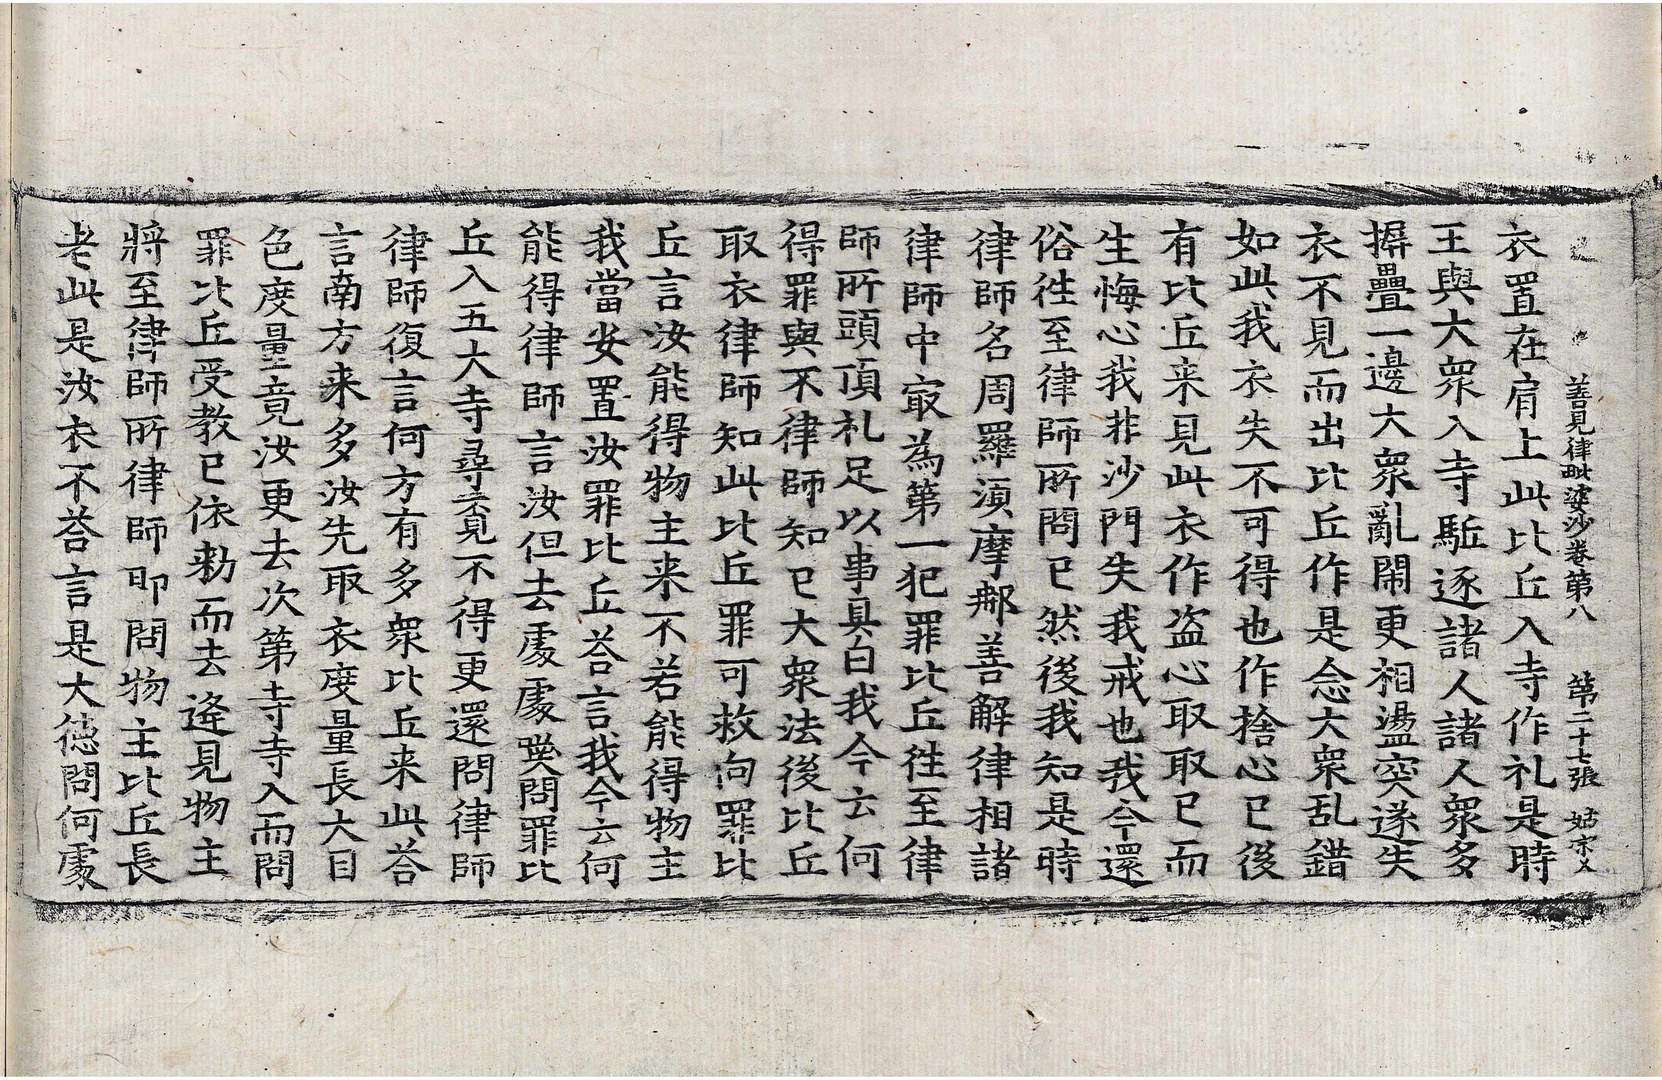 善見律毗婆沙卷第八 第二十七張 姑宗乂
衣置在肩上此比丘入寺作礼是時
王與大衆入寺駈逐諸人諸人衆多
摒疊一邊大衆亂閙更相盪突遂失
衣不見而出比丘作是念大衆乱錯
如此我衣失不可得也作捨心已後
有比丘来見此衣作盗心取取已而
生悔心我非沙門失我戒也我今還
俗往至律師所問已然後我知是時
律師名周羅湏摩那善解律相諸
律師中㝡為第一犯罪比丘往至律
師所頭頂礼足以事具白我今云何
得罪與不律師知已大衆法後比丘
取衣律師知此比丘罪可救向罪比
丘言汝能得物主来不若能得物主
我當安置汝罪比丘荅言我今云何
能得律師言汝但去處處𨷖問罪比
丘入五大寺尋覔不得更還問律師
律師復言何方有多衆比丘来此荅
言南方来多汝先取衣度量長大目
色度量竟汝更去次第寺寺入而問
罪比丘受教已依勑而去逄見物主
將至律師所律師即問物主比丘長
老此是汝衣不荅言是大徳問何處